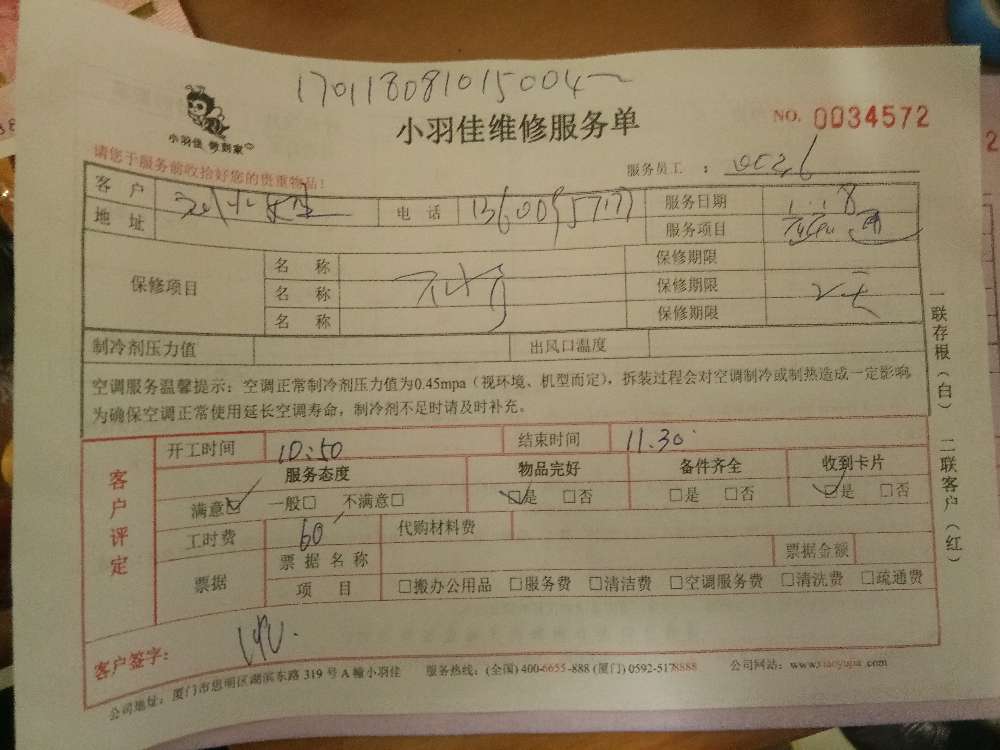 170118081015004
小羽佳维修服务单
NO. 0034572
小羽佳
请您于服务前收拾好您的贵重物品!
服务员工 : 0026
客户 电话 服务日期 1.18
地址 服务项目
保修项目 名称 保修期限
名称 保修期限
名称 保修期限
制冷剂压力值 出风口温度
空调服务温馨提示:空调正常制冷剂压力值为0.45mpa(视环境、机型而定),拆装过程会对空调制冷或制热造成一定影响,
为确保空调正常使用延长空调寿命,制冷剂不足时请及时补充。
客户评定
开工时间 10:50 结束时间 11.30
服务态度 物品完好 备件齐全 收到卡片
满意☑ 一般□ 不满意□ ☑是 □否 □是 □否 ☑是 □否
工时费 60 代购材料费
票据 票据名称 票据金额
项目 □搬办公用品 □服务费 □清洁费 □空调服务费 □清洗费 □疏通费
客户签字:
公司地址:厦门市思明区湖滨东路 319 号 A 幢小羽佳 服务热线:(全国) 400-6655-888 (厦门) 0592-5178888 公司网站:www.xiaoyujia.com
一联存根(白) 二联客户(红)